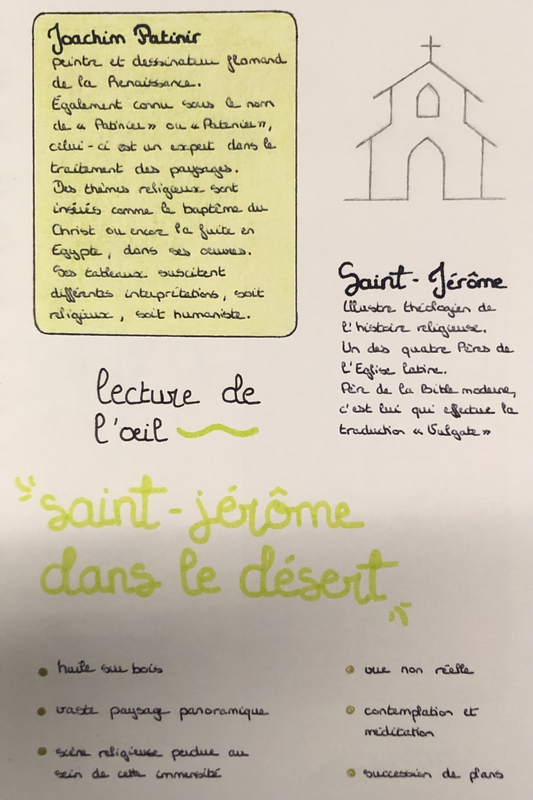 Joachim Patinir
peintre et dessinateur flamand
de la Renaissance.
Également connu sous le nom
de « Patinier » ou « Patenier »,
celui-ci est un expert dans le
traitement des paysages.
Des thèmes religieux sont
insérés comme le baptême du
Christ ou encore la fuite en
Egypte, dans ses oeuvres.
Ses tableaux suscitent
différentes interprétations, soit
religieux, soit humaniste.
Saint-Jérôme
Illustre théologien de
l'histoire religieuse.
Un des quatre Pères de
l'Eglise latine.
Père de la Bible moderne,
c'est lui qui effectue la
traduction « Vulgate »
lecture de
l'oeil
saint-jérôme
dans le désert
• huile sur bois
• vaste paysage panoramique
• scène religieuse perdue au
sein de cette immensité
• vue non réelle
• contemplation et
méditation
• succession de plans